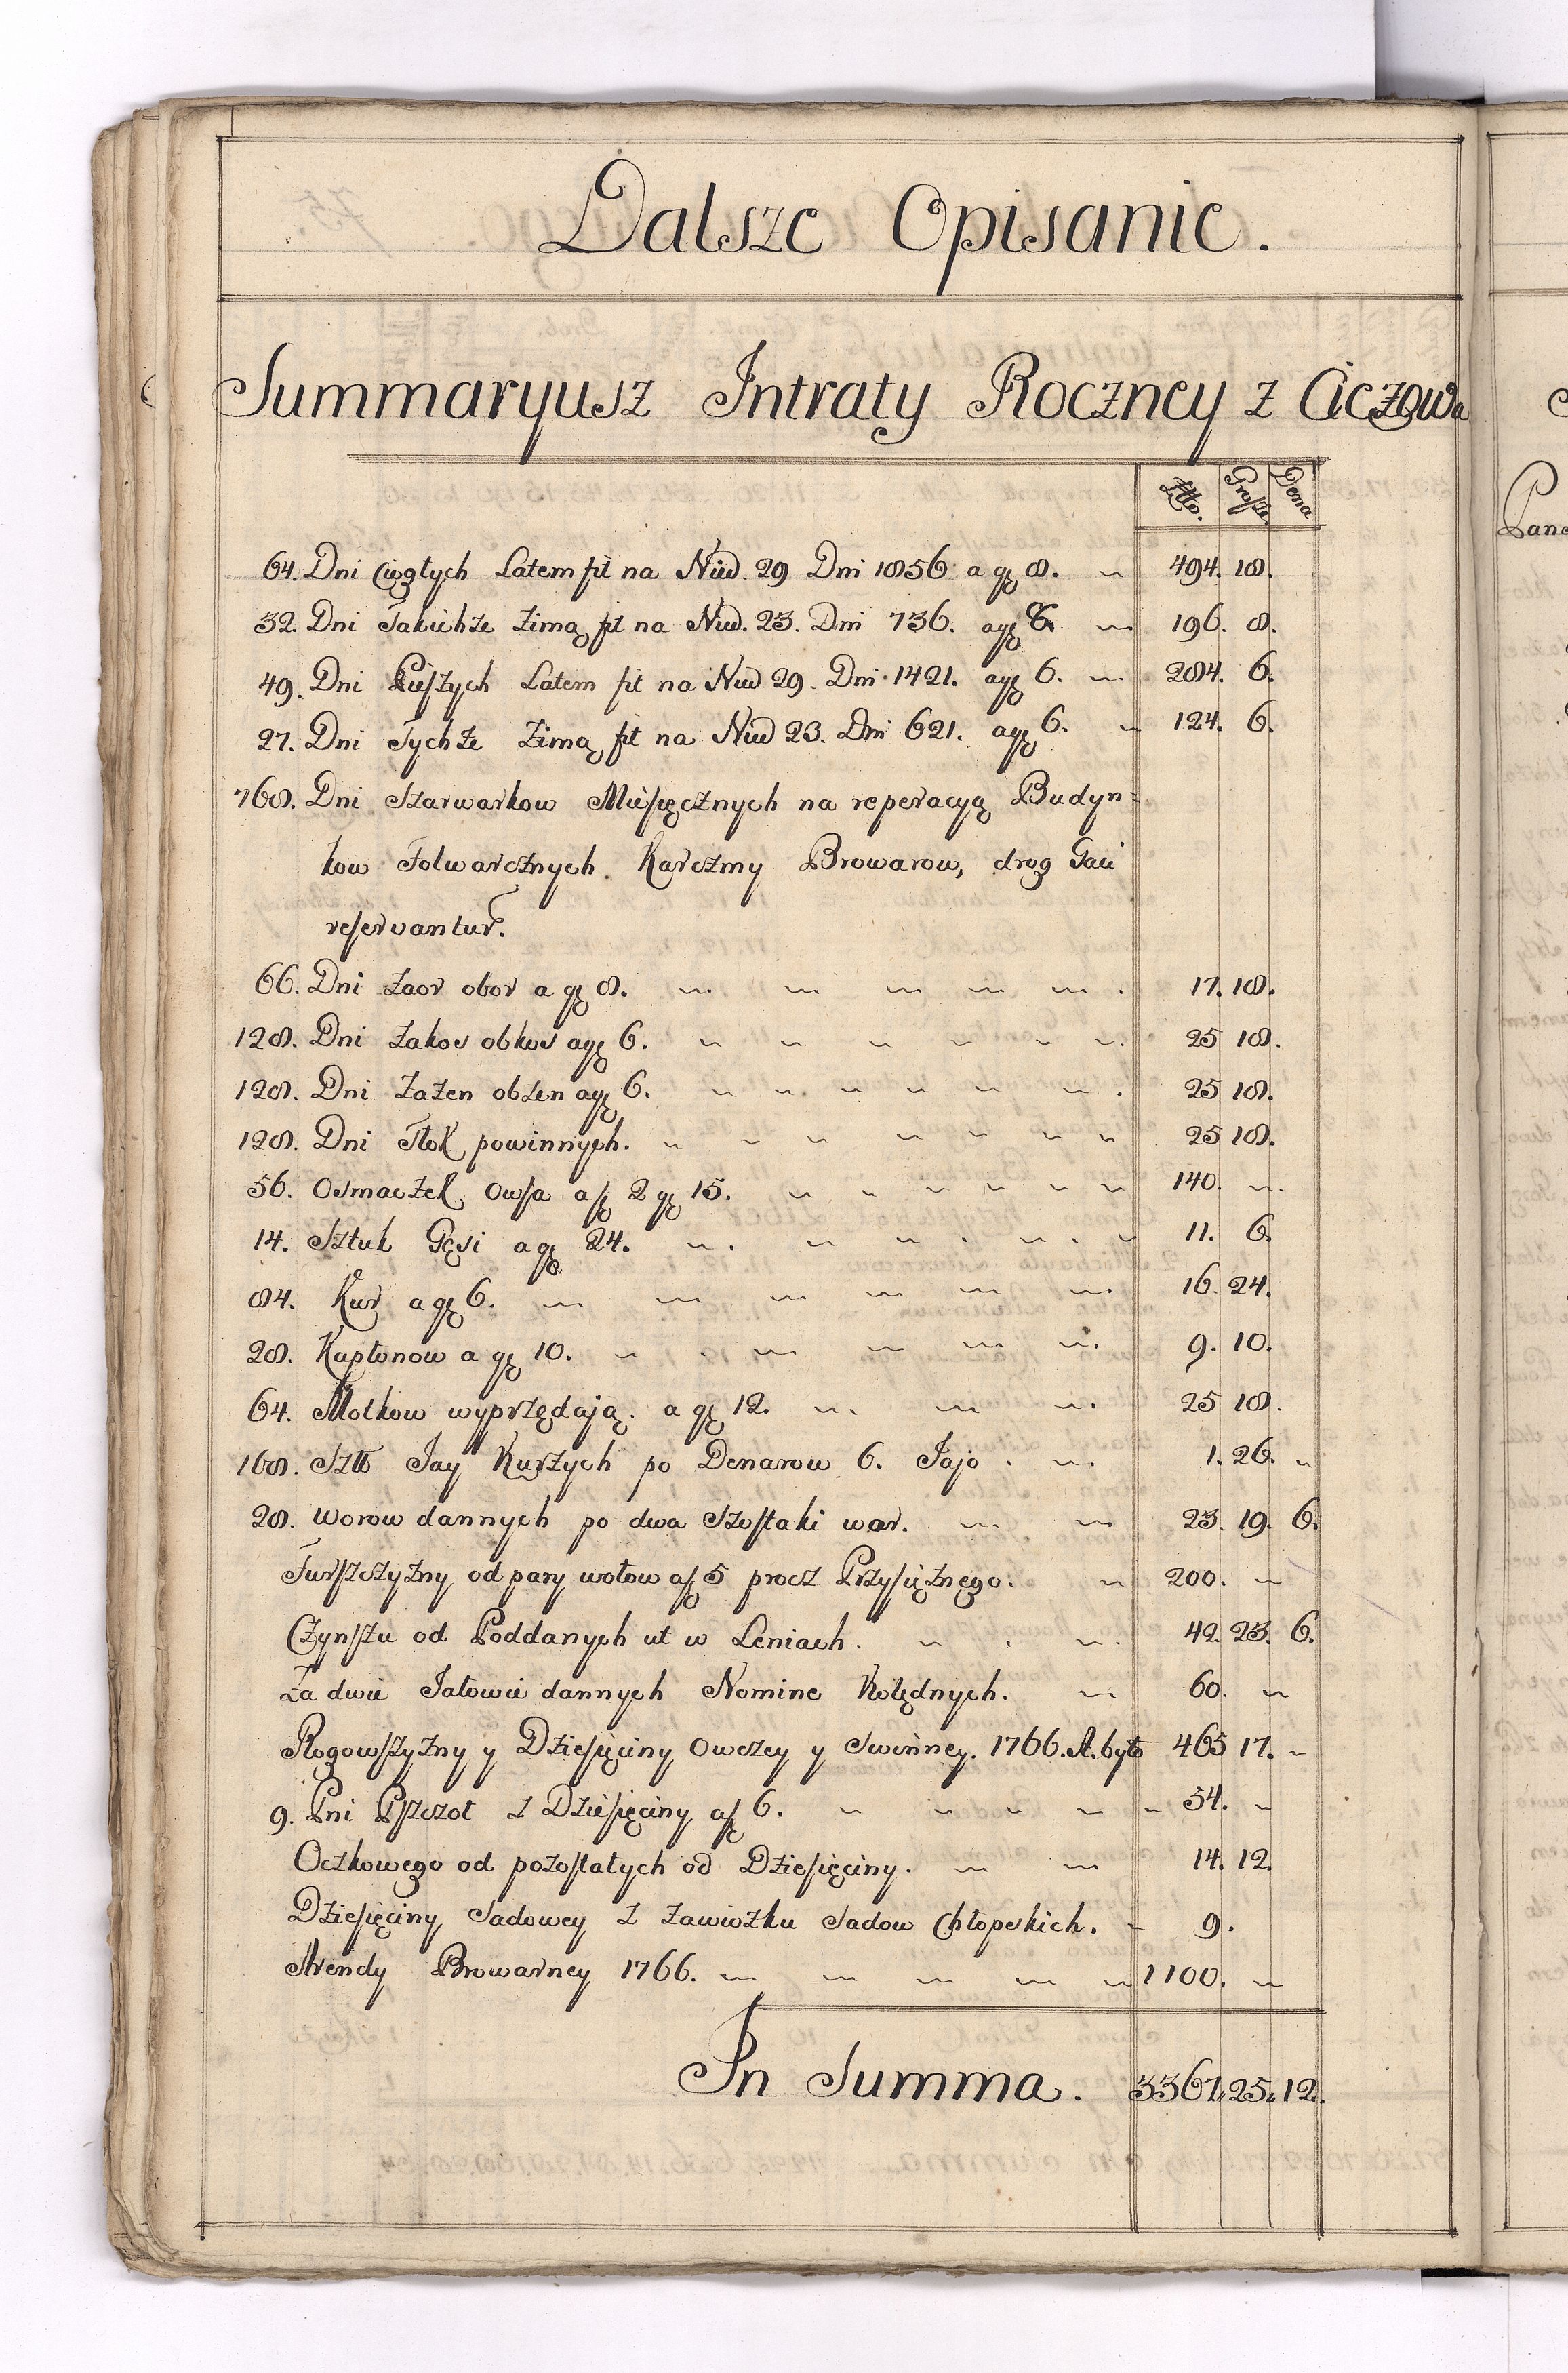 Dalsze Opisanie.
Summaryusz Intraty Roczney z Ciczowa
Złto. Grosze Dena
64. Dni Ciągłych Latem fit na Nied. 29 Dni 1856 a gr 8. 494. 18.
32. Dni Takichże Zimą fit na Nied. 23. Dni 736. a gr 8. 196. 8.
49. Dni Pieszych Latem fit na Nied 29. Dni 1421. a gr 6. 284. 6.
27. Dni Tychże Zimą fit na Nied 23. Dni 621. a gr 6. 124. 6.
768. Dni Szarwarkow Miesięcznych na reperacyą Budyn=
kow Folwarcznych. Karczmy Browarow, drog Gaci
reservantur.
66. Dni Zaor obor a gr 8. 17. 18.
128. Dni Zakos obkos a gr 6. 25 18.
128. Dni Zażen obżen a gr 6. 25 18.
128. Dni Tłok powinnych. 25 18.
56. Osmaczek Owsa a fl 2 gr 15. 140.
14. Sztuk Gęsi a gr 24. 11. 6.
84. Kur a gr 6. 16. 24.
28. Kapłonow a gr 10. 9. 10.
64. Motkow wyprzędają. a gr 12. 25 18.
168. Szt Jay Kurzych po Denarow 6. Jajo. 1. 26.
28. worow dannych po dwa Szostaki wor. 23. 19. 6.
Furszczyzny od pary wołow a fl 5 procz Przysiężnego. 200.
Czynszu od Poddanych ut w Leniach. 42. 23. 6.
Za dwie Jałowie dannych Nomine Kolędnych. 60.
Rogowszyzny y Dziesięciny Owczey y Swinney. 1766. A. było 465 17.
9. Pni Pszczoł z Dziesięciny a fl 6. 54.
Oczkowego od pozostałych od Dziesięciny. 14. 12.
Dziesięciny Sadowey z zawiozku Sadow Chłopskich. 9.
Arendy Browarney 1766. 1100.
In Summa. 3367. 25. 12.